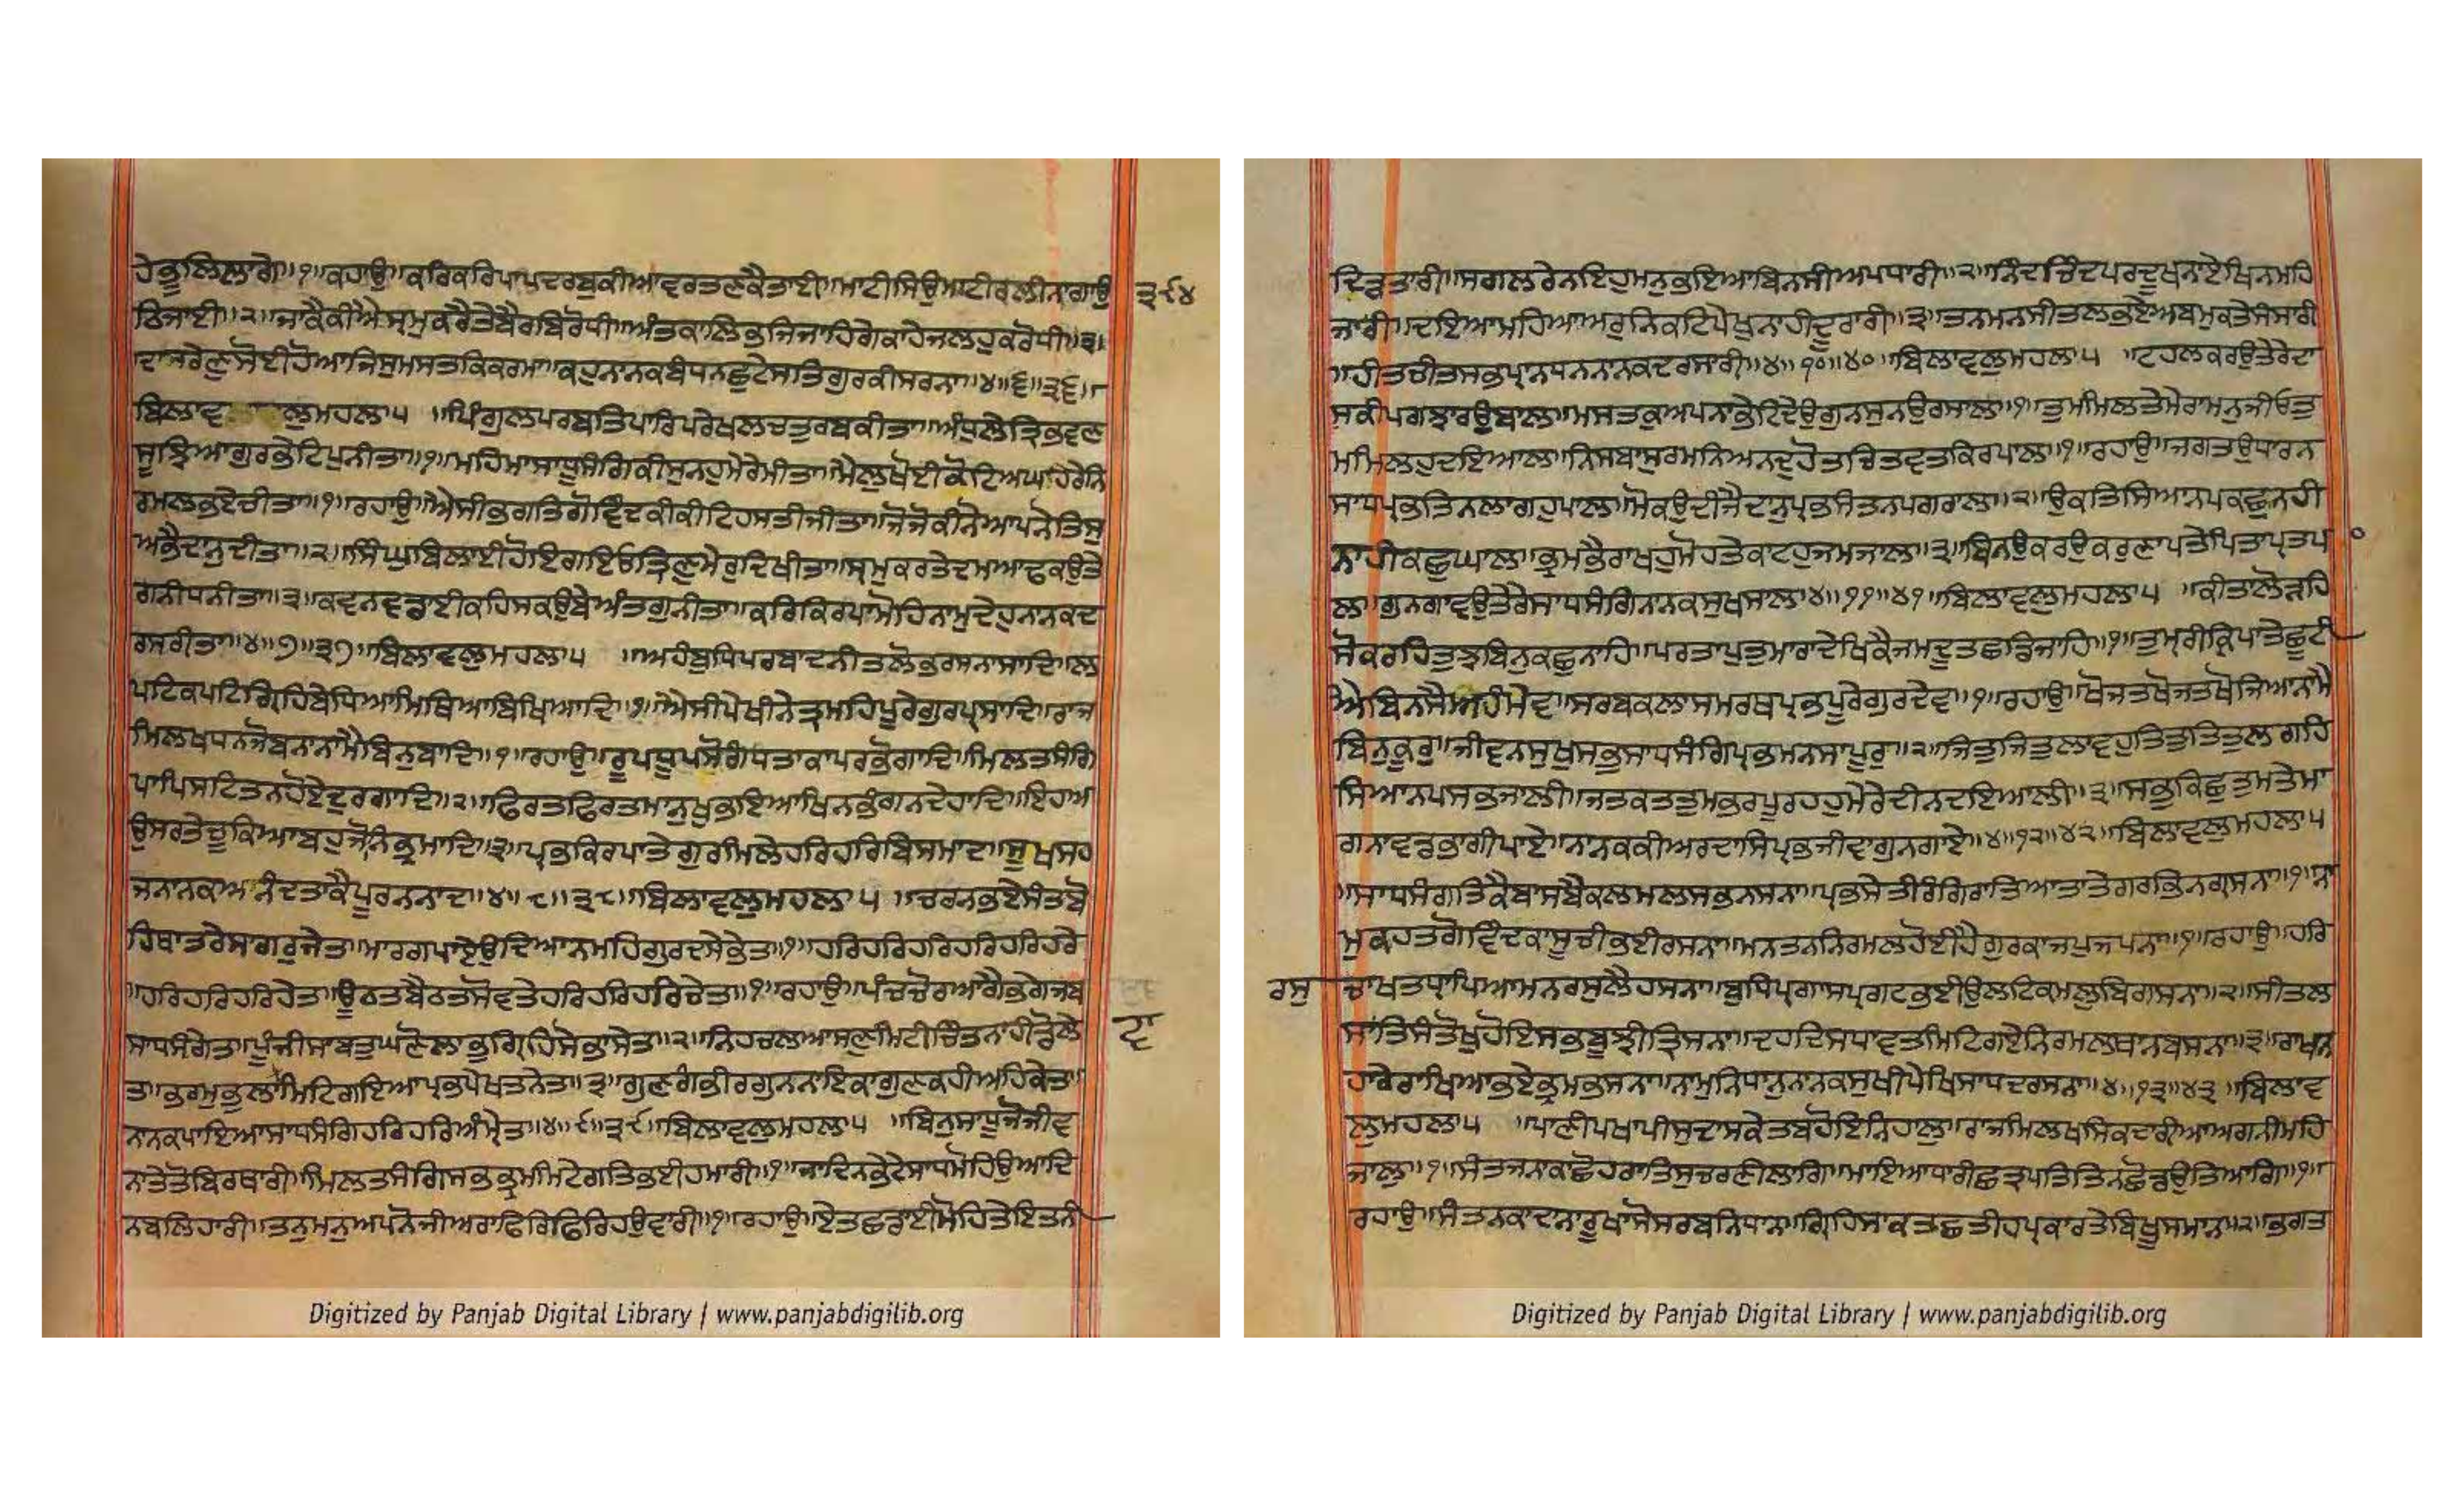 ਹੇਭੂਲਿਲਾਗੇ॥੧॥ਰਹਾਉ॥ਕਰਿਕਰਿਪਾਪਦਰਬੁਕੀਆਵਰਤਣਕੈਤਾਈ॥ਮਾਟੀਸਿਉਮਾਟੀਰਲੀਨਾਗਾਉ ੩੯੪
ਠਿਜਾਈ॥੨॥ਜਾਕੈਕੀਐਸ੍ਰਮੁਕਰੈਤੇਬੈਰਬਿਰੋਧੀ॥ਅੰਤਕਾਲਿਭਜਿਜਾਹਿਗੇਕਾਹੇਜਲਹੁਕਰੋਧੀ॥੩॥
ਦਾਸਰੇਣੁਸੋਈਹੋਆਜਿਸੁਮਸਤਕਿਕਰਮਾ॥ਕਹੁਨਾਨਕਬੰਧਨਛੁਟੇਸਤਿਗੁਰਕੀਸਰਨਾ॥੪॥੬॥੩੬॥
ਬਿਲਾਵਲੁਮਹਲਾ੫ ॥ਪਿੰਗੁਲਪਰਬਤਿਪਾਰਿਪਰੇਖਲਚਤੁਰਬਕੀਤਾ॥ਅੰਧੁਲੇਤ੍ਰਿਭਵਣ
ਸੂਝਿਆਗੁਰਭੇਟਿਪੁਨੀਤਾ॥੧॥ਮਹਿਮਾਸਾਧੂਸੰਗਿਕੀਸੁਨਹੁਮੇਰੇਮੀਤਾ॥ਮੈਲੁਖੋਈਕੋਟਿਅਘਹਿਰੇਨਿ
ਰਮਲਭਏਚੀਤਾ॥੧॥ਰਹਾਉ॥ਐਸੀਭਗਤਿਗੋਵਿੰਦਕੀਕੀਟਿਹਸਤੀਜੀਤਾ॥ਜੋਜੋਕੀਨੋਆਪਨੋਤਿਸੁ
ਅਭੈਦਾਨੁਦੀਤਾ॥੨॥ਸਿੰਘੁਬਿਲਾਈਹੋਇਗਇਓਤ੍ਰਿਣੁਮੇਰੁਦਿਖੀਤਾ॥ਸ੍ਰਮੁਕਰਤੇਦਮਾਆਢਕਉਤੇ
ਗਨੀਧਨੀਤਾ॥੩॥ਕਵਨਵਡਾਈਕਹਿਸਕਉਬੇਅੰਤਗੁਨੀਤਾ॥ਕਰਿਕਿਰਪਾਮੋਹਿਨਾਮੁਦੇਹੁਨਾਨਕਦ
ਰਸਰੀਤਾ॥੪॥੭॥੩੭॥ਬਿਲਾਵਲੁਮਹਲਾ੫ ॥ਅਹੰਬੁਧਿਪਰਬਾਦਨੀਤਲੋਭਰਸਨਾਸਾਦਿ॥ਲ
ਪਟਿਕਪਟਿਗ੍ਰਿਹਿਬੇਧਿਆਮਿਥਿਆਬਿਖਿਆਦਿ॥੧॥ਐਸੀਪੇਖੀਨੇਤ੍ਰਮਹਿਪੂਰੇਗੁਰਪ੍ਰਸਾਦਿ॥ਰਾਜ
ਮਿਲਖਧਨਜੋਬਨਾਨਾਮੈਬਿਨੁਬਾਦਿ॥੧॥ਰਹਾਉ॥ਰੂਪਧੂਪਸੋਗੰਧਤਾਕਾਪਰਭੋਗਾਦਿ॥ਮਿਲਤਸੰਗਿ
ਪਾਪਿਸਟਤਨਹੋਏਦੁਰਗਾਦਿ॥੨॥ਫਿਰਤਫਿਰਤਮਾਨੁਖੁਭਇਆਖਿਨਭੰਗਨਦੇਹਾਦਿ॥ਇਹਅ
ਉਸਰਤੇਚੂਕਿਆਬਹੁਜੋਨਿਭ੍ਰਮਾਦਿ॥੩॥ਪ੍ਰਭਕਿਰਪਾਤੇਗੁਰਮਿਲੇਹਰਿਹਰਿਬਿਸਮਾਦ॥ਸੂਖਸਹ
ਜਨਾਨਕਅਨੰਦਤਾਕੈਪੂਰਨਨਾਦ॥੪॥੮॥੩੮॥ਬਿਲਾਵਲੁਮਹਲਾ੫ ॥ਚਰਨਭਏਸੰਤਬੋ
ਹਿਥਾਤਰੇਸਾਗਰੁਜੇਤ॥ਮਾਰਗਪਾਏਉਦਿਆਨਮਹਿਗੁਰਦਸੇਭੇਤ॥੧॥ਹਰਿਹਰਿਹਰਿਹਰਿਹਰਿਹਰੇ
॥ਹਰਿਹਰਿਹਰਿਹੇਤ॥ਊਠਤਬੈਠਤਸੋਵਤੇਹਰਿਹਰਿਹਰਿਚੇਤ॥੧॥ਰਹਾਉ॥ਪੰਚਚੋਰਆਗੈਭਗੇਜਬ
ਸਾਧਸੰਗੇਤ॥ਪੂੰਜੀਸਾਬਤੁਘਣੋਲਾਭੁਗ੍ਰਿਹਿਸੋਭਾਸੇਤ॥੨॥ਨਿਹਚਲਆਸਣੁਮਿਟੀਚਿੰਤਨਾਹੀਡੋਲੇ
ਤ॥ਭਰਮੁਭੁਲਾਮਿਟਿਗਇਆਪ੍ਰਭਪੇਖਤਨੇਤ॥੩॥ਗੁਣਗੰਭੀਰਗੁਨਨਾਇਕਾਗੁਣਕਹੀਅਹਿਕੇਤ॥
ਨਾਨਕਪਾਇਆਸਾਧਸੰਗਿਹਰਿਹਰਿਅੰਮ੍ਰੇਤ॥੪॥੯॥੩੯॥ਬਿਲਾਵਲੁਮਹਲਾ੫ ॥ਬਿਨੁਸਾਧੂਜੋਜੀਵ
ਨਾਤੇਤੋਬਿਰਥਾਰੀ॥ਮਿਲਤਸੰਗਿਸਭਭ੍ਰਮਮਿਟੇਗਤਿਭਈਹਮਾਰੀ॥੧॥ਜਾਦਿਨਭੇਟੇਸਾਧਮੋਹਿਉਆਦਿ
ਨਬਲਿਹਾਰੀ॥ਤਨੁਮਨੁਅਪਨੋਜੀਅਰਾਫਿਰਿਫਿਰਿਹਉਵਾਰੀ॥੧॥ਰਹਾਉ॥ਏਤਛਡਾਈਮੋਹਿਤੇਇਤਨੀ
ਦ੍ਰਿੜਤਾਰੀ॥ਸਗਲਰੇਨਇਹੁਮਨੁਭਇਆਬਿਨਸੀਅਪਧਾਰੀ॥੨॥ਨਿੰਦਚਿੰਦਪਰਦੂਖਨਾਏਖਿਨਮਹਿ
ਜਾਰੀ॥ਦਇਆਮਹਿਆਅਰੁਨਿਕਟਿਪੇਖੁਨਾਹੀਦੂਰਾਰੀ॥੩॥ਤਨਮਨਸੀਤਲਭਏਅਬਮੁਕਤੇਸੰਸਾਰੀ
॥ਹੀਤਚੀਤਸਭਪ੍ਰਾਨਧਨਨਾਨਕਦਰਸਾਰੀ॥੪॥੧੦॥੪੦॥ਬਿਲਾਵਲੁਮਹਲਾ੫ ॥ਟਹਲਕਰਉਤੇਰੇਦਾ
ਸਕੀਪਗਝਾਰਉਬਾਲ॥ਮਸਤਕੁਅਪਨਾਭੇਟਿਦੇਉਗੁਨਸੁਨਉਰਸਾਲ॥੧॥ਤੁਮ੍ਹਮਿਲਤੇਮੇਰਾਮਨੁਜੀਓਤੁ
ਮਮਿਲਹੁਦਇਆਲ॥ਨਿਸਬਾਸੁਰਮਨਿਅਨਦੁਹੋਤਚਿਤਵਤਕਿਰਪਾਲ॥੧॥ਰਹਾਉ॥ਜਗਤਉਧਾਰਨ
ਸਾਧਪ੍ਰਭਤਿਨਲਾਗਹੁਪਾਲ॥ਮੋਕਉਦੀਜੈਦਾਨੁਪ੍ਰਭਸੰਤਨਪਗਰਾਲ॥੨॥ਉਕਤਿਸਿਆਨਪਕਛੁਨਹੀ
ਨਾਹੀਕਛੁਘਾਲ॥ਭ੍ਰਮਭੈਰਾਖਹੁਮੋਹਤੇਕਾਟਹੁਜਮਜਾਲ॥੩॥ਬਿਨਉਕਰਉਕਰੁਣਾਪਤੇਪਿਤਾਪ੍ਰਤਪ ੦
ਲ॥ਗੁਨਗਾਵਉਤੇਰੇਸਾਧਸੰਗਿਨਾਨਕਸੁਖਸਾਲ॥੪॥੧੧॥੪੧॥ਬਿਲਾਵਲੁਮਹਲਾ੫ ॥ਕੀਤਾਲੋੜਹਿ
ਸੋਕਰਹਿਤੁਝਬਿਨੁਕਛੁਨਾਹਿ॥ਪਰਤਾਪੁਤੁਮਾਰਾਦੇਖਿਕੈਜਮਦੂਤਛਡਿਜਾਹਿ॥੧॥ਤੁਮ੍ਰੀਕ੍ਰਿਪਾਤੇਛੂਟੀ
ਐਬਿਨਸੈਅਹੰਮੇਵ॥ਸਰਬਕਲਾਸਮਰਥਪ੍ਰਭਪੂਰੇਗੁਰਦੇਵ॥੧॥ਰਹਾਉ॥ਖੋਜਤਖੋਜਤਖੋਜਿਆਨਾਮੈ
ਬਿਨੁਕੂਰੁ॥ਜੀਵਨਸੁਖੁਸਭੁਸਾਧਸੰਗਿਪ੍ਰਭਮਨਸਾਪੂਰੁ॥੨॥ਜਿਤੁਜਿਤੁਲਾਵਹੁਤਿਤੁਤਿਤੁਲਗਹਿ
ਸਿਆਨਪਸਭਜਾਲੀ॥ਜਤਕਤਤੁਮਭਰਪੂਰਹਹੁਮੇਰੇਦੀਨਦਇਆਲੀ॥੩॥ਸਭੁਕਿਛੁਤੁਮਤੇਮਾ
ਗਨਾਵਡਭਾਗੀਪਾਏ॥ਨਾਨਕਕੀਅਰਦਾਸਿਪ੍ਰਭਜੀਵਾਗੁਨਗਾਏ॥੪॥੧੨॥੪੨॥ਬਿਲਾਵਲੁਮਹਲਾ੫
॥ਸਾਧਸੰਗਤਿਕੈਬਾਸਬੈਕਲਮਲਸਭਨਸਨਾ॥ਪ੍ਰਭਸੇਤੀਰੰਗਿਰਾਤਿਆਤਾਤੇਗਰਭਿਨਗ੍ਰਸਨਾ॥੧॥ਨਾ
ਮੁਕਹਤਗੋਵਿੰਦਕਾਸੂਚੀਭਈਰਸਨਾ॥ਮਨਤਨਨਿਰਮਲਹੋਈਹੈਗੁਰਕਾਜਪੁਜਪਨਾ॥੧॥ਰਹਾਉ॥ਹਰਿ
ਰਸੁ ਚਾਖਤਧ੍ਰਾਪਿਆਮਨਰਸੁਲੈਹਸਨਾ॥ਬੁਧਿਪ੍ਰਗਾਸਪ੍ਰਗਟਭਈਉਲਟਿਕਮਲੁਬਿਗਸਨਾ॥੨॥ਸੀਤਲ
ਸਾਂਤਿਸੰਤੋਖੁਹੋਇਸਭਬੂਝੀਤ੍ਰਿਸਨਾ॥ਦਹਦਿਸਧਾਵਤਮਿਟਿਗਏਨਿਰਮਲਥਾਨਬਸਨਾ॥੩॥ਰਾਖਨ
ਹਾਰੇਰਾਖਿਆਭਏਭ੍ਰਮਭਸਨਾ॥ਨਾਮੁਨਿਧਾਨੁਨਾਨਕਸੁਖੀਪੇਖਿਸਾਧਦਰਸਨਾ॥੪॥੧੩॥੪੩॥ਬਿਲਾਵ
ਲੁਮਹਲਾ੫ ॥ਪਾਣੀਪਖਾਪੀਸੁਦਾਸਕੇਤਬਹੋਇਨਿਹਾਲੁ॥ਰਾਜਮਿਲਖਸਿਕਦਾਰੀਆਅਗਨੀਮਹਿ
ਜਾਲੁ॥੧॥ਸੰਤਜਨਕਾਛੋਹਰਾਤਿਸੁਚਰਣੀਲਾਗਿ॥ਮਾਇਆਧਾਰੀਛਤ੍ਰਪਤਿਤਿਨਛੋਡਉਤਿਆਗਿ॥੧॥
ਰਹਾਉ॥ਸੰਤਨਕਾਦਾਨਾਰੂਖਾਸੋਸਰਬਨਿਧਾਨ॥ਗ੍ਰਿਹਿਸਾਕਤਛਤੀਹਪ੍ਰਕਾਰਤੇਬਿਖੂਸਮਾਨ॥੨॥ਭਗਤ
Digitized by Panjab Digital Library | www.panjabdigilib.org
Digitized by Panjab Digital Library | www.panjabdigilib.org